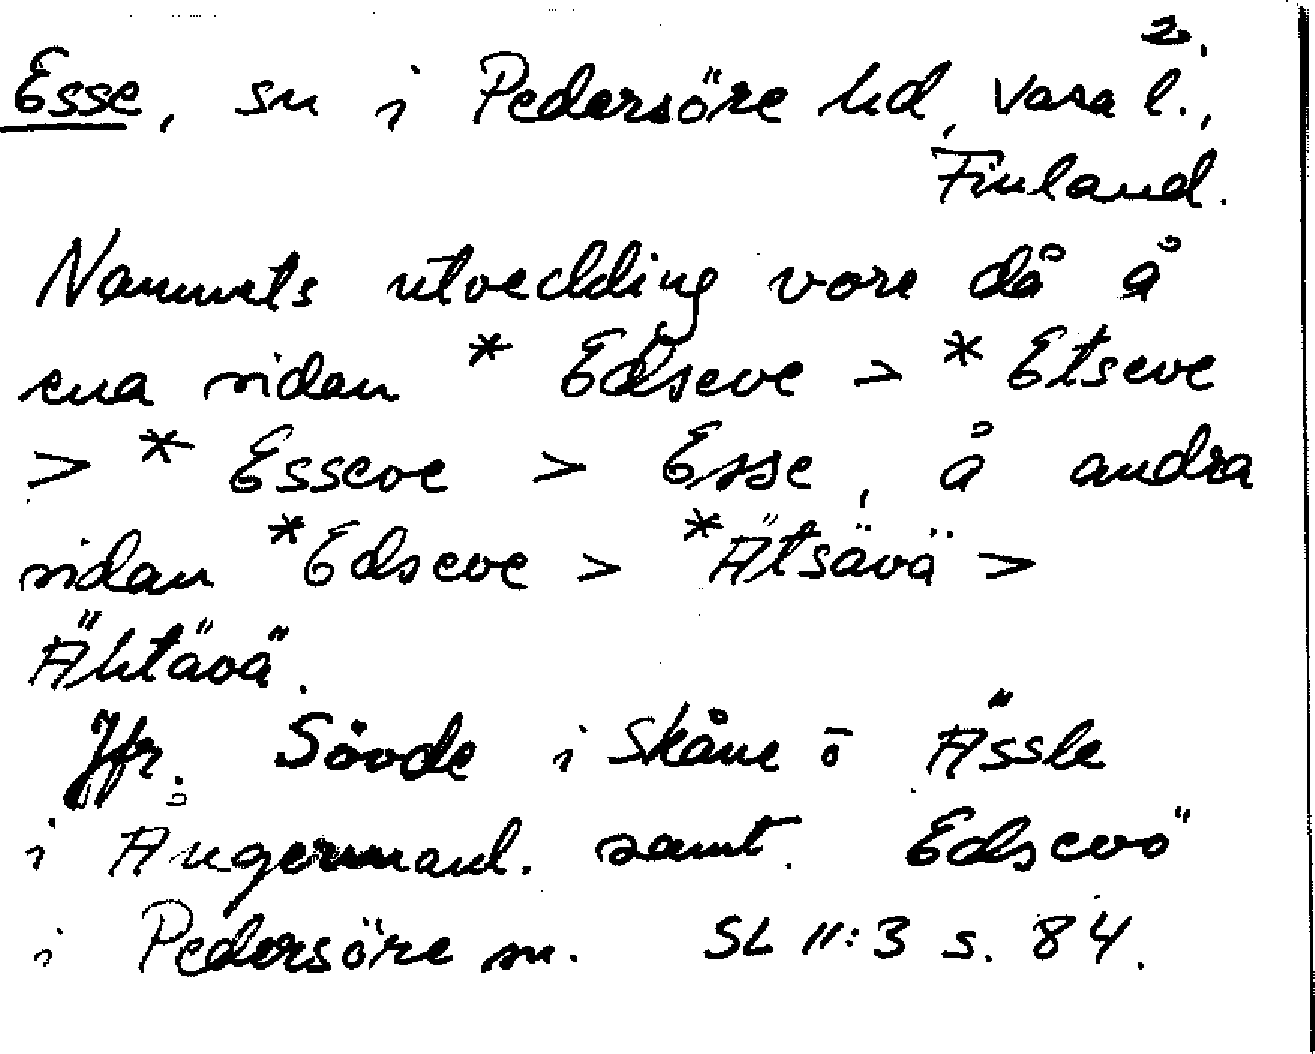 2.
Esse, sn i Pedersöre hd, Vasa l.,
Finland.
Namnets utveckling vore då å
ena sidan * Edseve > * Etseve
> * Esseve > Esse, å andra
sidan *Edseve > *Ätsävä >
Ähtävä.
Jfr. Sövde i Skåne o Ässle
i Ångermanl. samt. Edsevö
i Pedersöre sn. SL 11:3 s. 84.